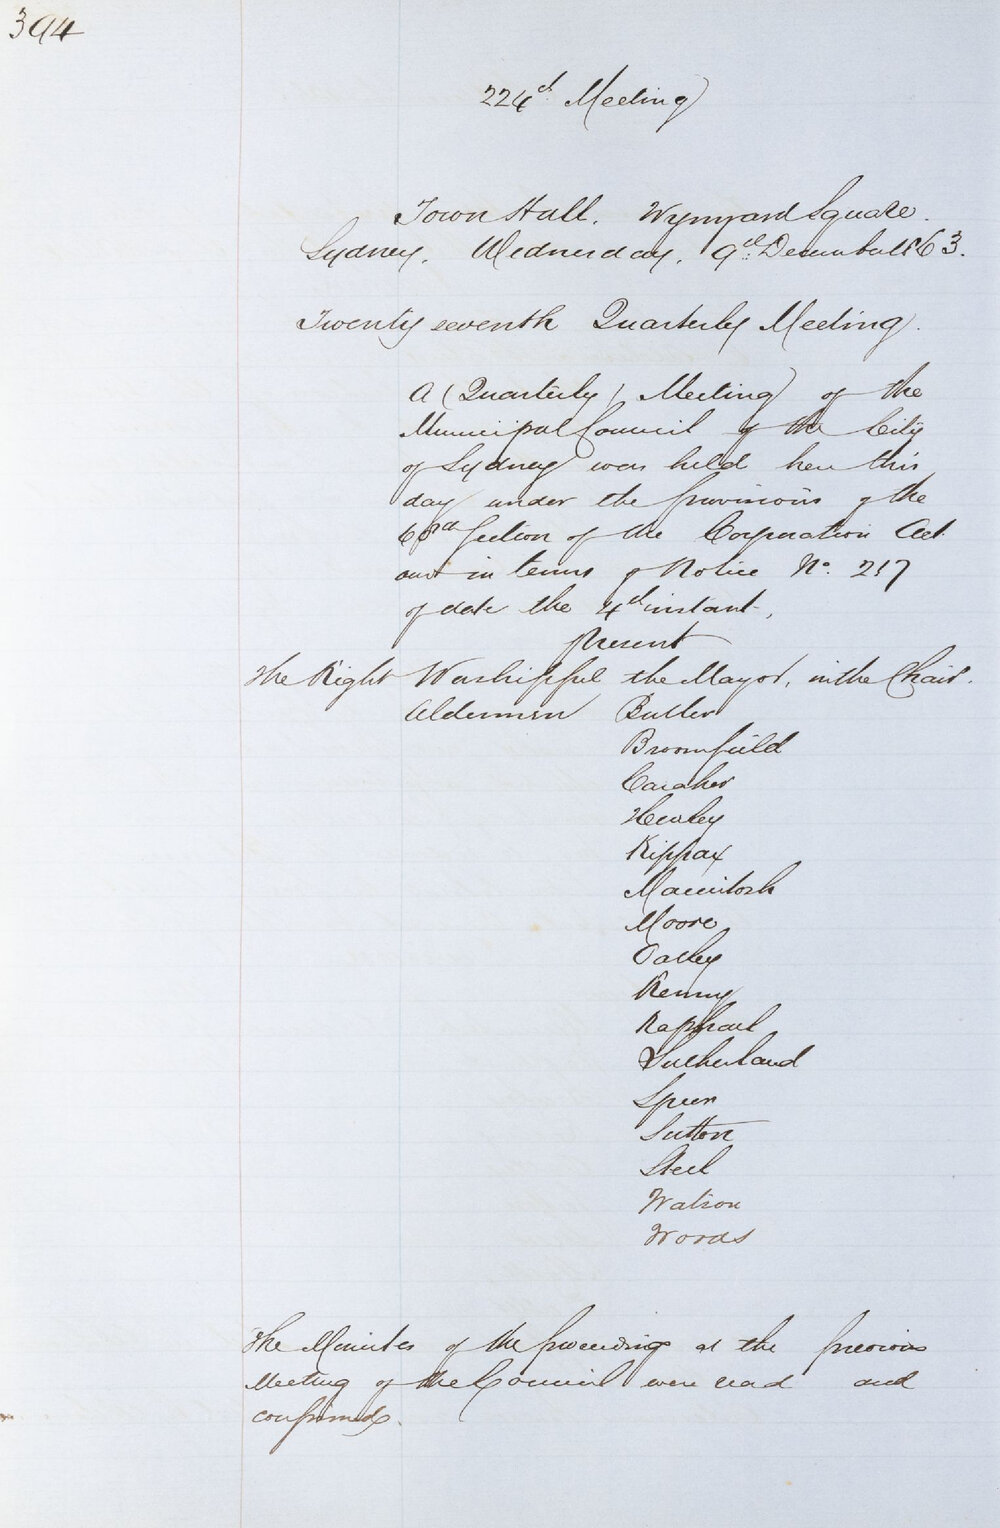 394
224th Meeting
Town Hall. Wynyard Square.
Sydney. Wednesday. 9th December 1863.
Twenty seventh Quarterly Meeting.
A (Quarterly) Meeting of the
Municipal Council of the City
of Sydney was held here this
day under the provisions of the
Section of the Corporation Act
and in terms of Notice No. 217
of date the 4th instant,
Present
The Right Worshipful the Mayor, in the Chair.
Aldermen Butler
Broomfield
Caraher
Hewley
Kippax
Macintosh
Moore
Oatley
Renny
Raphael
Sutherland
Speer
Sutton
Steel
Watson
Woods
The Minutes of the proceedings at the previous
Meeting of the Council were read and
confirmed.